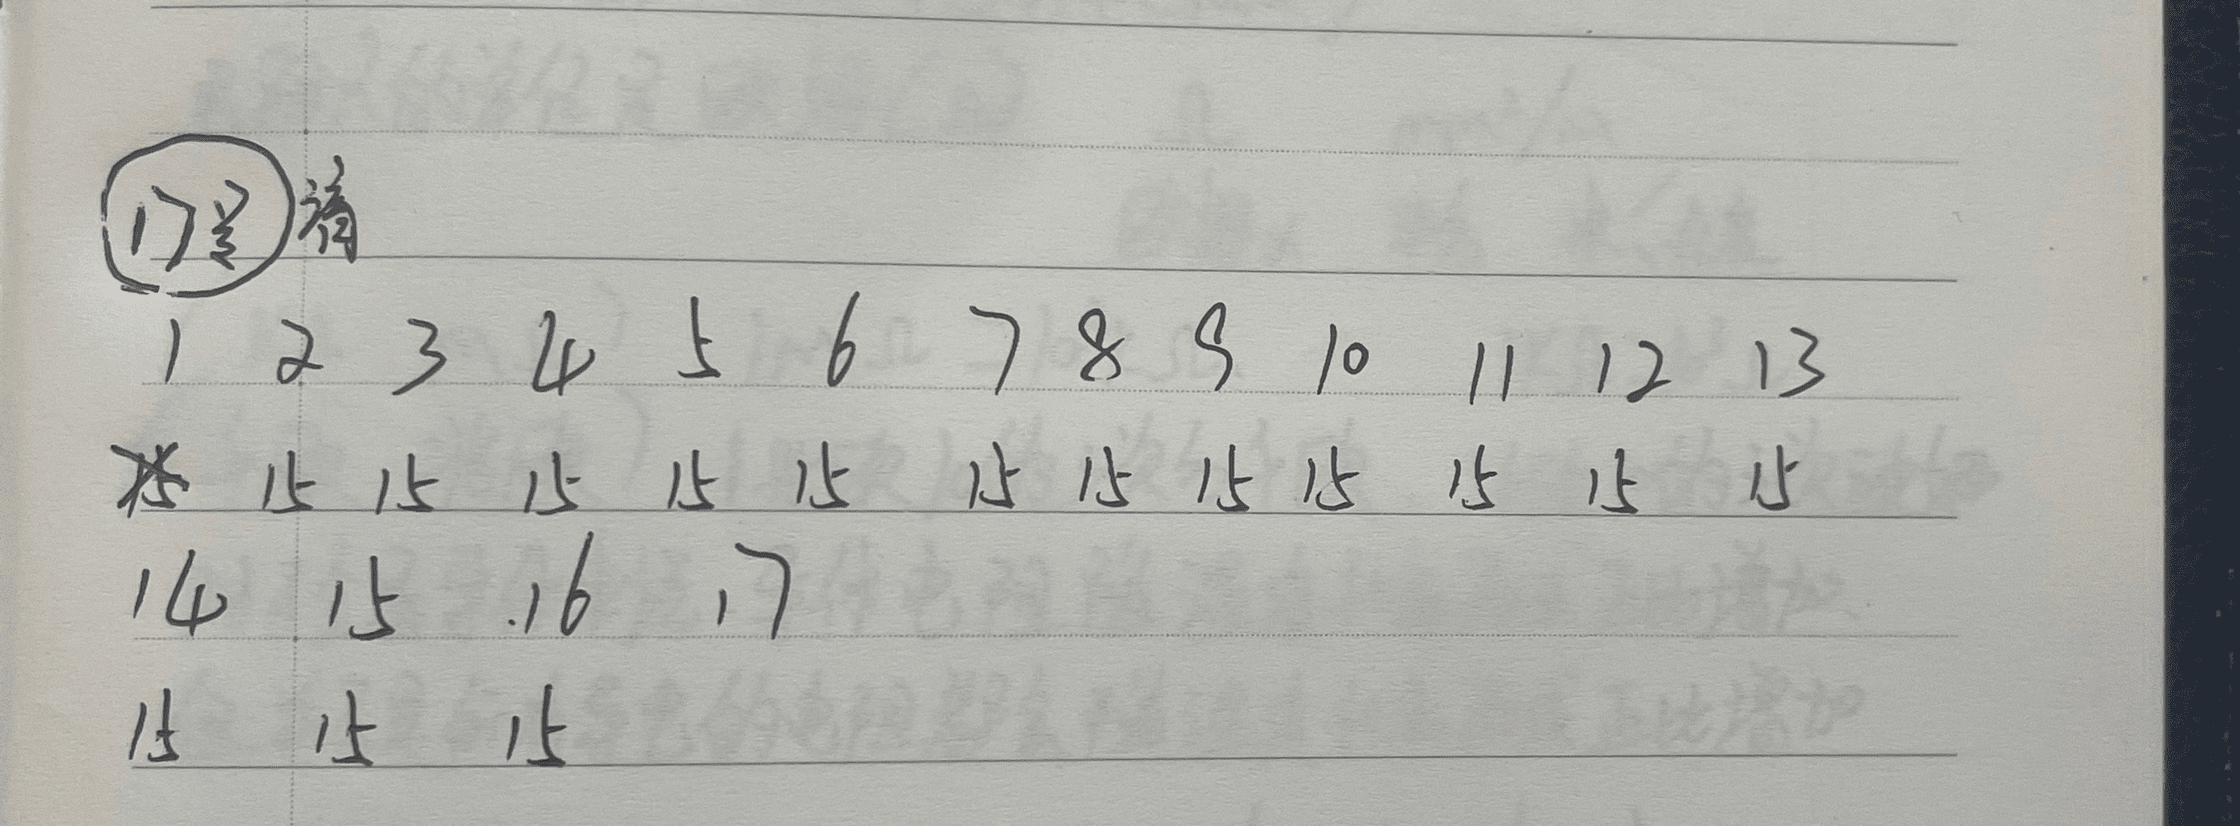 17
1 2 3 4 5 6 7 8 9 10 11 12 13
15 15 15 15 15 15 15 15 15 15 15 15
14 15 16 17
15 15 15